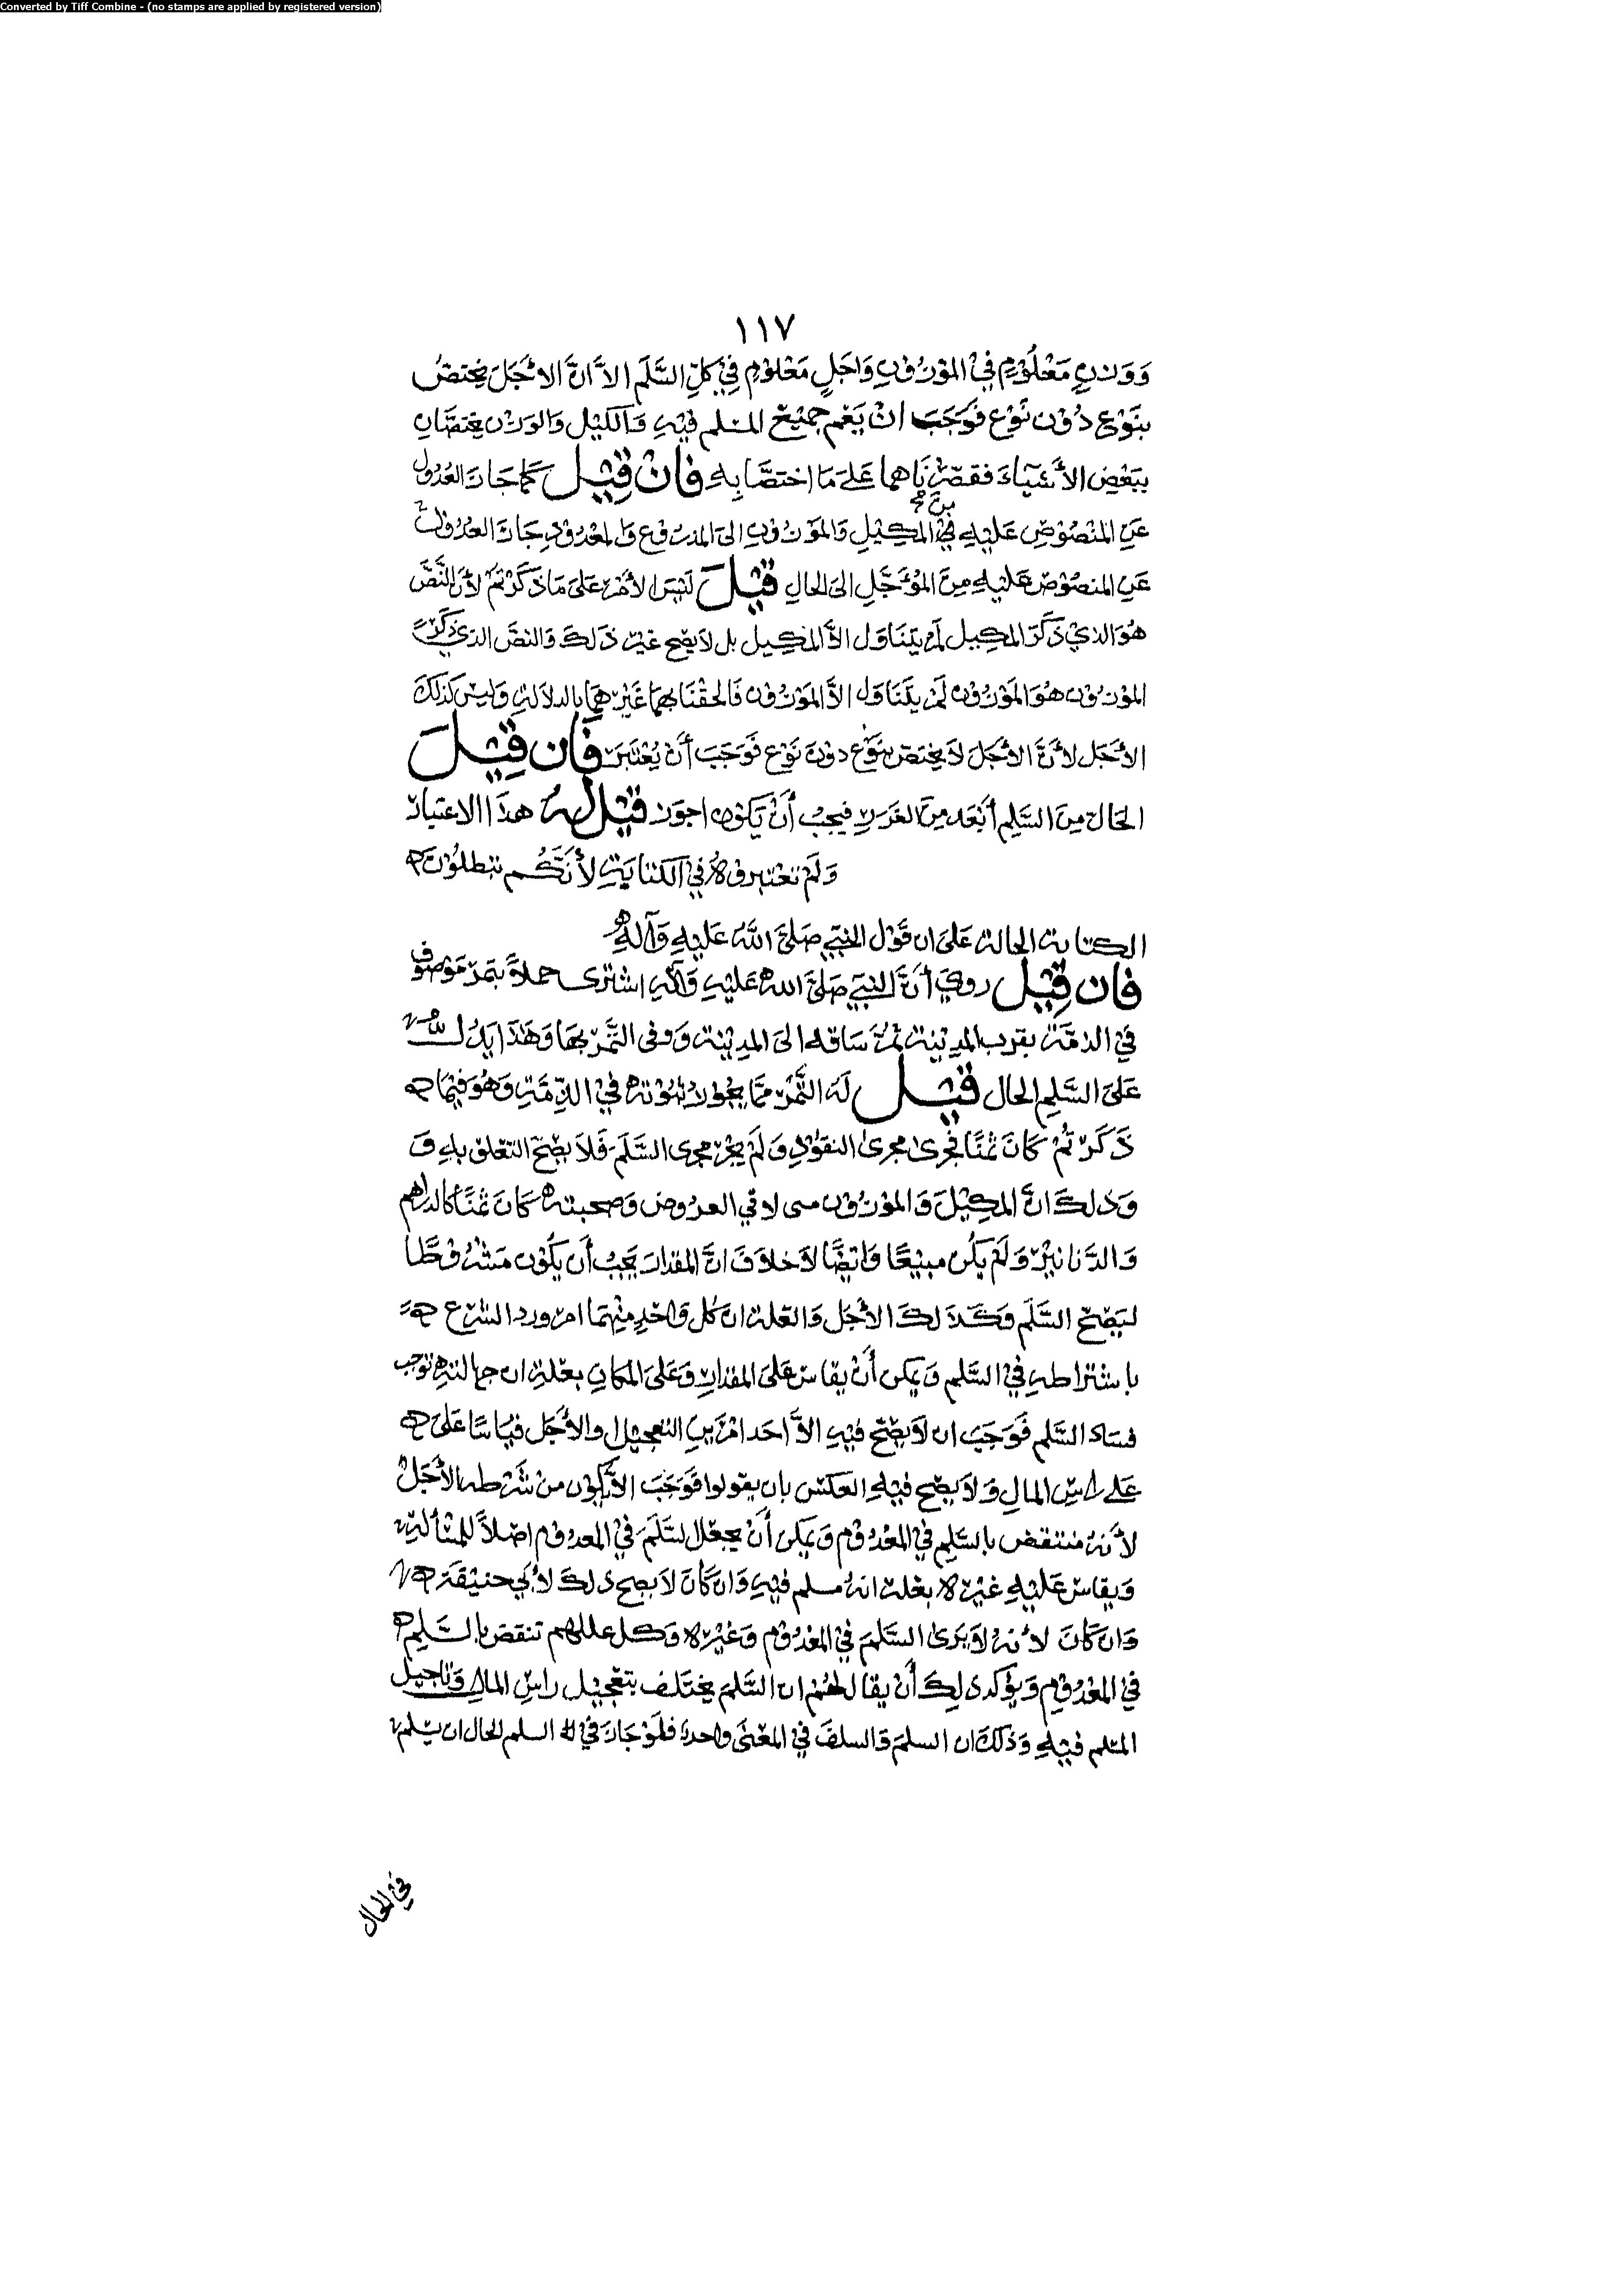 Converted by Tiff Combine - (no stamps are applied by registered version)
١١٧
وَوَزنٍ مَعْلُوْمٍ فِيْ المَوْزُوْنِ وَاجَلٍ مَعْلوْمٍ فِيْ كلِّ السَّلَمِ الاَّ انَّ الاجَلَ يختصُ
بنَوْعٍ دُوْن نَوْعٍ فوَجَبَ انْ يَعُم جميْعَ المسْلم فيْهِ وَالكيْل وَالوزنْ يختصَّانِ
ببَعْضِ الأَشيَاءَ فقصَرْنَاهما عَلىَ مَا اختصَّا بِهِ فانْ قِيْل كمَا جَازَ العُدُول
عَنِ المنْصُوْصِ عَليْهِ فيْ المكِيْلِ وَالموْزُوْنِ الىَ المذرُوْعِ وَالمعْدُوْدِ جَازَ العدُوْلُ
عَنِ المنصُوْصِ عَليْهِ مِنَ المُؤَجَّلِ الىَ الحالِ قيْلَ ليْسَ الأمْر عَلىَ مَا ذكَرْتمْ لأنَّ النَّصَّ
هُوَ الذيْ ذكَرَ المكِيل لمْ يتَنَاوَل الاَّ المكيل بل لاَ يصح غيْر ذلكَ وَالنصَّ الذي ذكرَ
الموْزوْن هُوَ الموْزوْن لمْ يتنَاوَل الاَّ الموْزوْن فَالحقْنَا بهمَا غَيْرَهمَا بالدلاَلةِ وَليْسَ كذلكَ
الأجَل لأنَّ الأجَل لاَ يختص بنَوْع دوْنَ نَوْع فَوَجَبَ أنْ يُعْتبَرَ فَان قِيْلَ
الحَال مِنَ السَّلمِ أبْعَد مِنَ الغَررِ فيجبُ أنْ يَكوْن اجوَز قيْل لهُ هذَا الاعتبَار
وَلمْ تعْتبروْهُ في الكتَابَةِ لأنَّكُم تبطلُوْنَ
الكتابة الحالة عَلىَ ان قَوْل النبيّ صَلىَّ اللهُ عَليْهِ وَآلهِ
فَان قِيْل رويَ أنَّ النبيّ صَلىَّ الله عَليْهِ وَآلهِ اشترَى حملاً بتمْر مَوْصوف
فيْ الذمَّة بقرب المديْنة ثمَّ سَاقه الىَ المديْنة وَوفى التَّمْر بهَا وَهَذا يَدُلُّ
عَلىَ السَّلمِ الحال قيْل لَهُ التَّمْر ممَّا يجوْز ثبُوْته فيْ الذِّمَّةِ وَهُوَ فيْمَا
ذَكَرْتُمْ كَانَ ثمَنًا فجَرى مجرى النقوْدِ وَلمْ يجْر مجرَى السَّلَمِ فَلاَ يصِحّ التعَلق بهِ وَ
وَذلكَ انَّ المكيْلَ وَالموْزوْن متى لاقي العروْض وَصحبته كانَ ثمَنًا كالدراهم
وَالدَّنانيْر وَلَمْ يكُن مبيْعًا وَايْضًا لاَ خلاَفَ انَّ المقدارَ يجبُ أن يكُوْن مَشرُوْطًا
ليَصحّ السَّلَم وَكذَلكَ الأجَل وَالعلة انَّ كل وَاحدٍ منْهمَا امر ورد الشرْع
باشتراطهِ فيْ السَّلمِ وَيمكن أنْ يقاسَ عَلىَ المقدارِ وَعَلىَ المكانِ بعلةِ ان جهالته توْجب
فسَاد السَّلمِ فَوَجَبَ ان لاَ يصِحّ فيْهِ الاَّ احَد امْرَينِ التعجيْل وَالأجَل قيَاسًا عَلىَ
عَلى رَاسِ المالِ وَلاَ يصح فيْهِ العكسَ بان يقولوا فَوَجَبَ الاَّ يكوْن منْ شرْطه الأجَلُ
لأنهُ منتقض بالسَّلمِ فيْ المعْدُوْمِ وَيمكن أنْ يجعَل السَّلَمَ فيْ المعدوْم اصْلاً للمسْألةِ
وَيقاس عَليْهِ غيْره بعلة انهُ مسلم فيْهِ وَان كَانَ لاَ يصح ذلكَ لأبي حنيْفَة
وَان كَانَ لأنهُ لاَ يَرىَ السَّلَمَ فيْ المعْدُوْمِ وَغيْره وَكل عللهم تنتقض بالسَّلمِ
فيْ المعْدُوْمِ وَيؤَكد ذلِكَ أنْ يقال لهُمْ ان السَّلمَ يختَلف بتعْجيْل رَاسِ المالِ وَتاجيْل
المسْلم فيْهِ وَذلكَ ان السلمَ وَالسلفَ فيْ المعْنى وَاحد فلَوْ جَازَ فيْ السلم الحال ان يسْلم
فيْ الحال